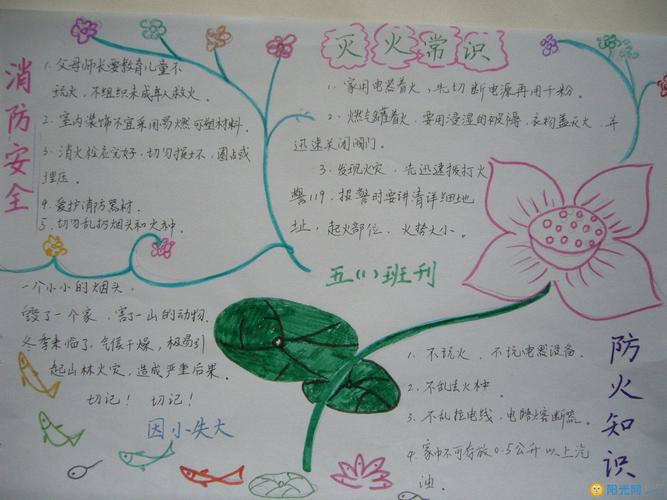 消防安全
1. 父母师长要教育儿童不
玩火，不组织未成年人救火。
2. 室内装饰不宜采用易燃可塑材料
3. 消火栓应完好，切勿损坏、圈占或
埋压。
4. 爱护消防器材
5. 切勿乱扔烟头和火种
灭火常识
1. 家用电器着火，先切断电源再用干粉。
2. 燃气罐着火，要用浸湿的被褥、衣物盖灭火，并
迅速关闭阀门。
3. 发现火灾，先迅速拨打火
警119，报警时要讲清详细地
址，起火部位、火势大小。
五(1)班刊
一个小小的烟头，
毁了一个家，害了一山的动物。
冬季来临了，气候干燥，极易引
起山林火灾，造成严重后果。
切记！ 切记！
因小失大
防火知识
1. 不玩火、不玩电器设备。
2. 不乱丢火种。
3. 不乱拉电线，电路熔断器。
4. 家中不可存放0.5公升以上汽
油。
阳光网